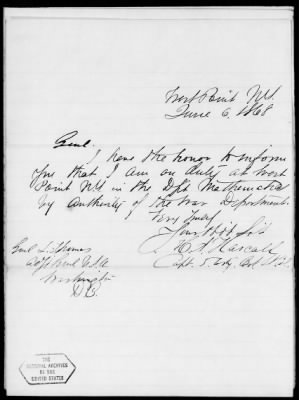 West Point N.Y.
June 6, 1868
Genl.
I have the honor to inform
you that I am on duty at West
Point N.Y. in the Dpt. Mathematics
by Authority of the War Department.
Very Truly
Your Obdt Svt
Capt. 5. Arty.
Genl L. Thomas
Adjt Genl U.S.A.
Washington
D.C.
THE
NATIONAL ARCHIVES
OF THE
UNITED STATES